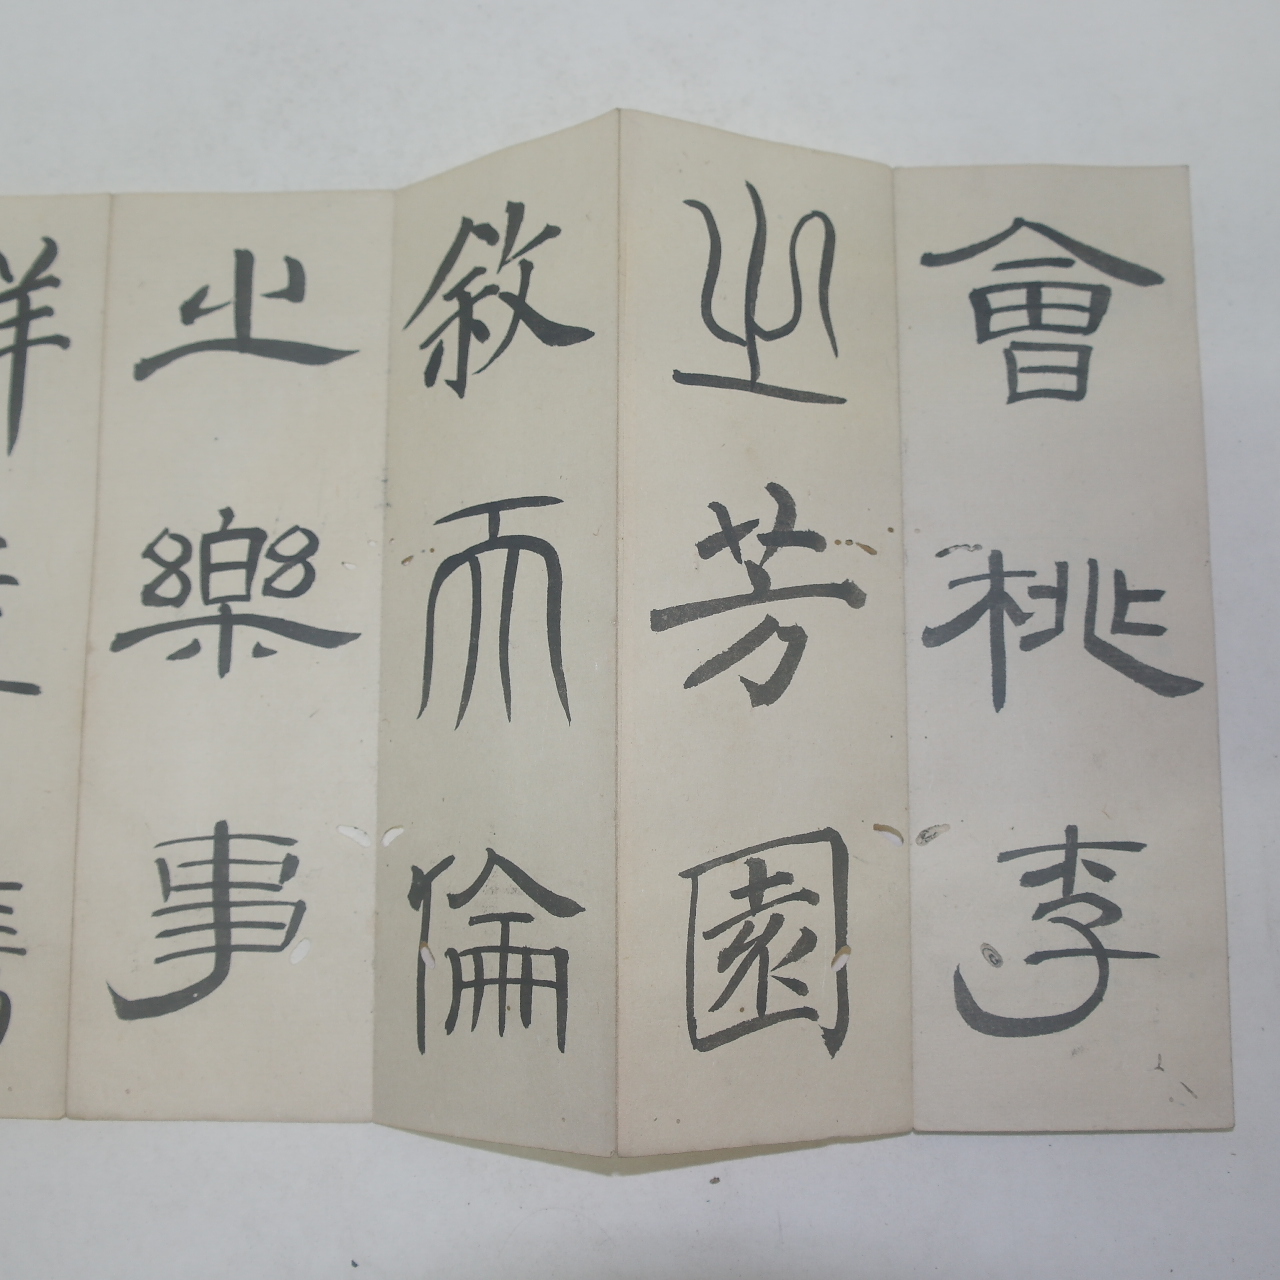 會桃李
之芳園
敘天倫
之樂事